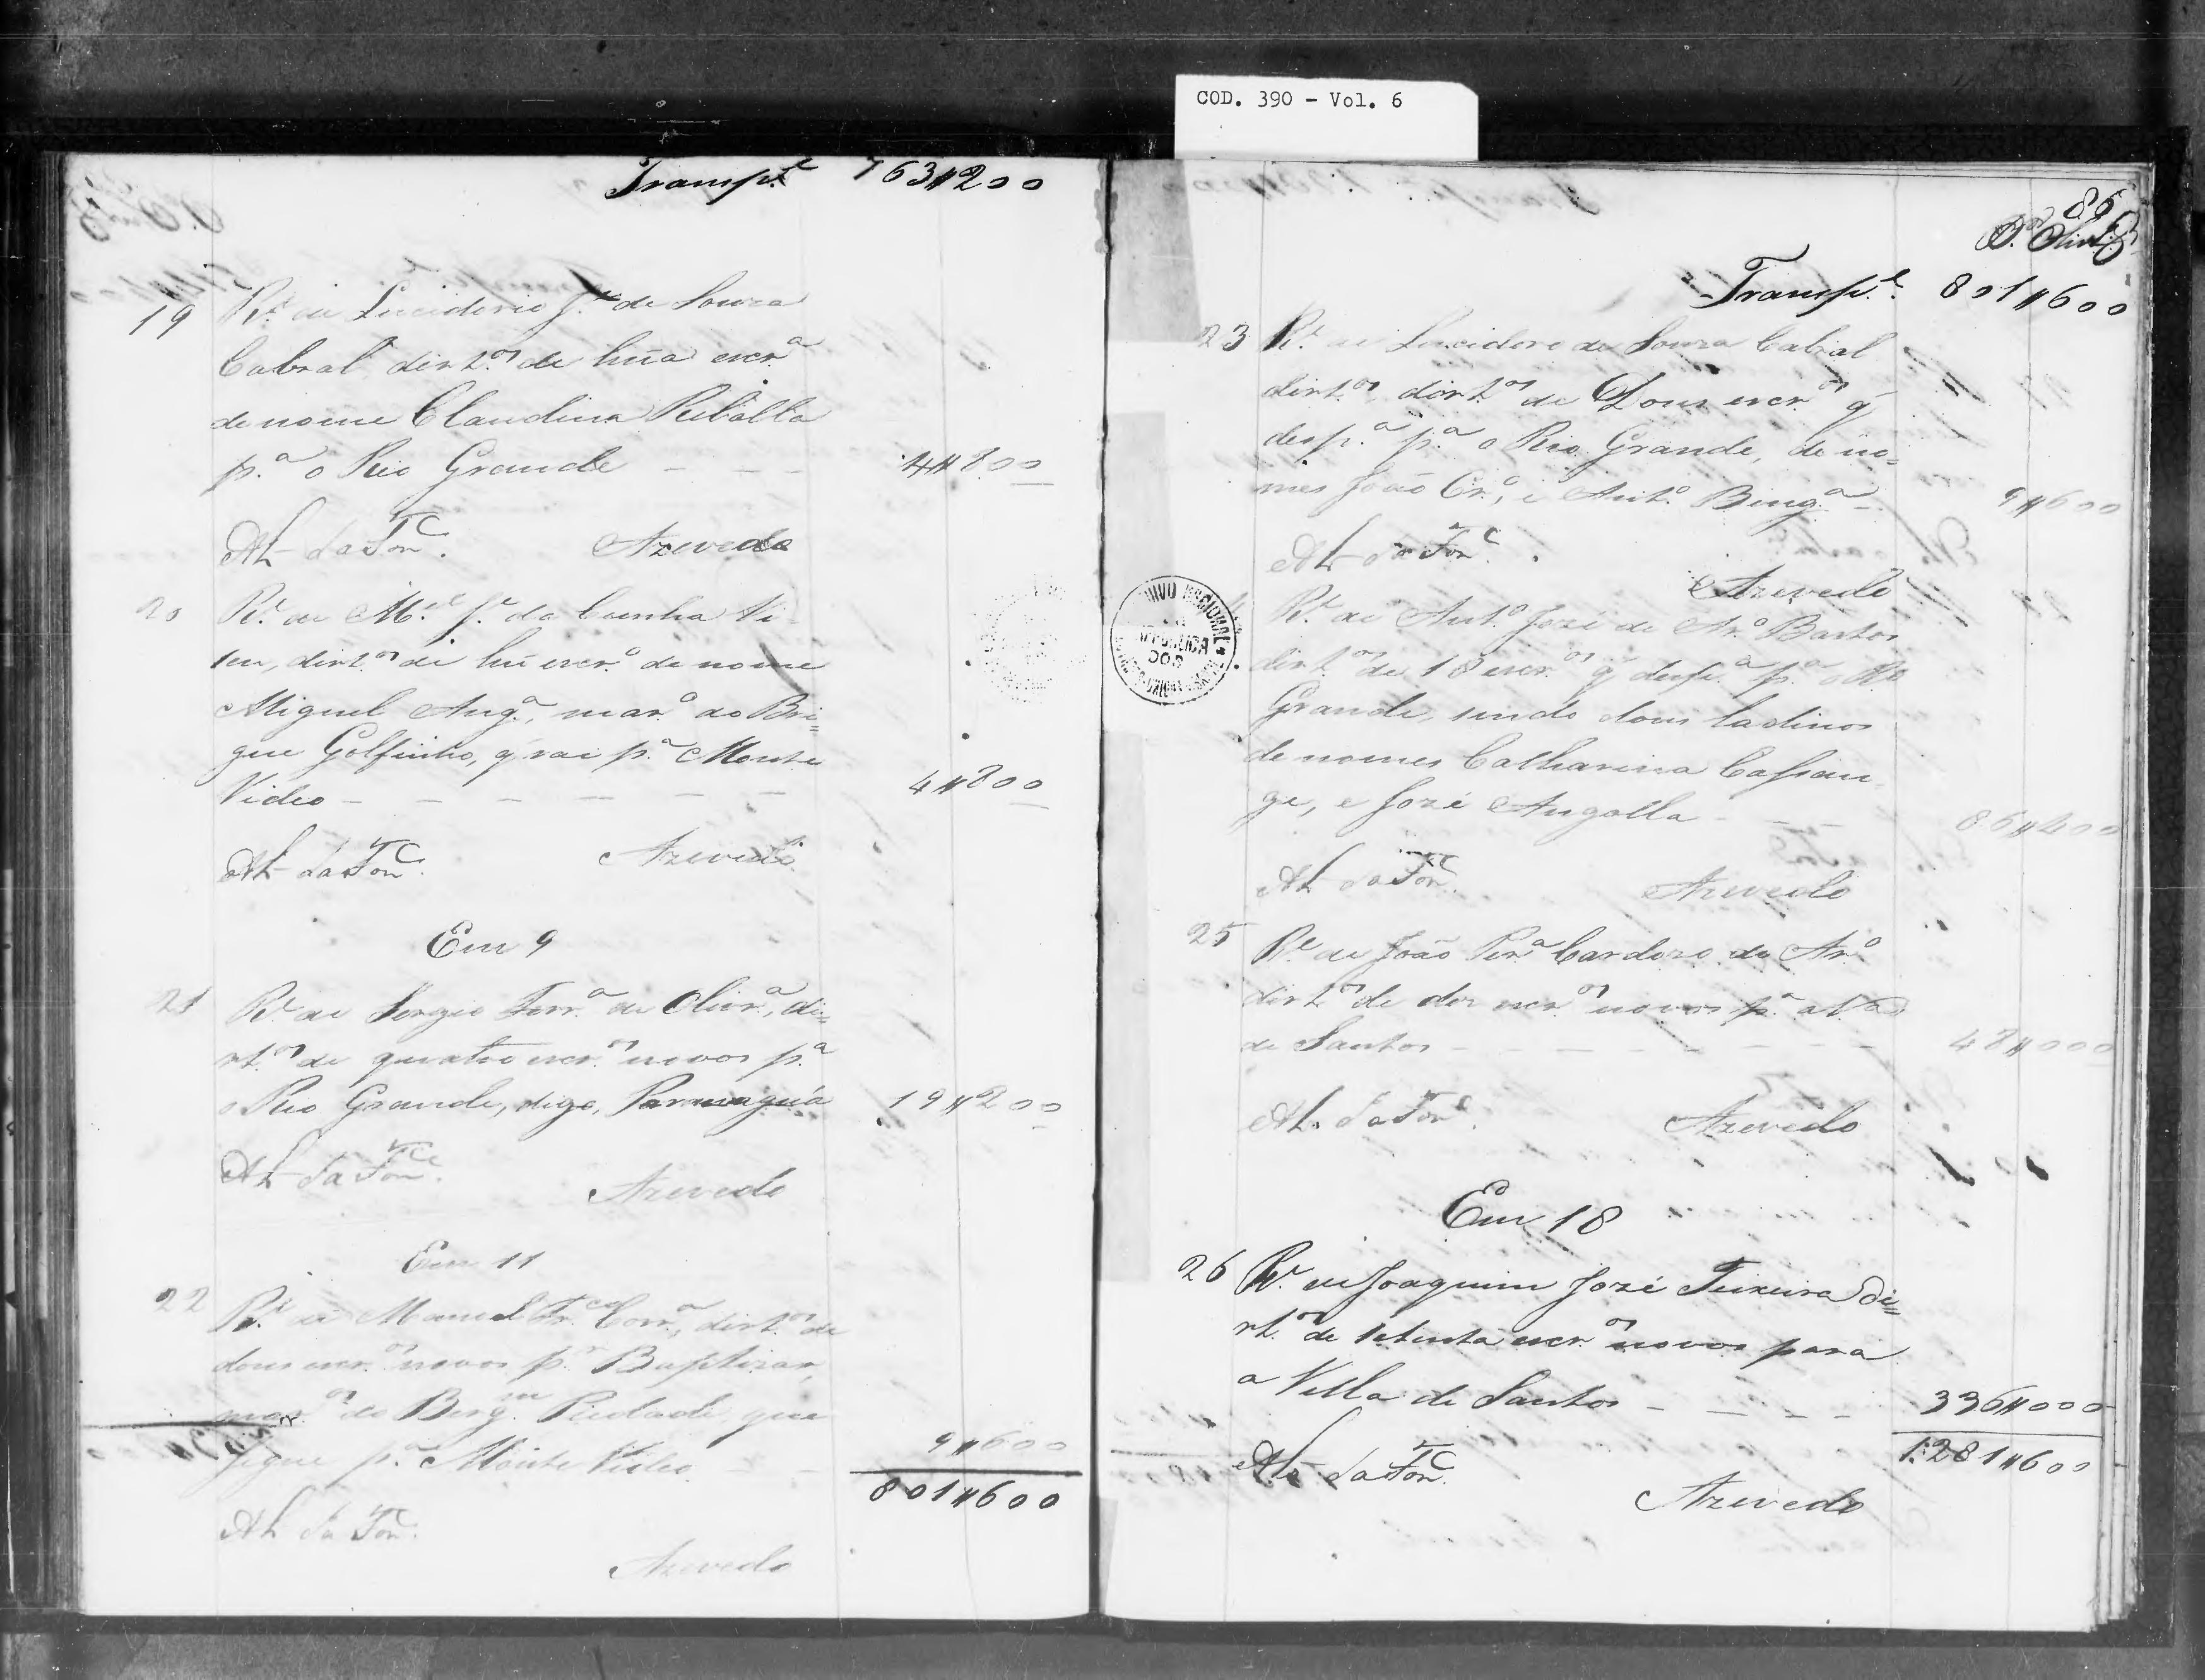 COD. 390 - Vol. 6
Transp.e 763#200
19 R.e de Lucidorio J.e de Souza
Cabral dirt.os de hũa escr.a
de nome Claudina Rebolla
p.a o Rio Grande - - - 4#800
Az.do da Fon.c Azevedo
20 R.e de M.el J.e da Cunha Vi-
seu, dirt.os de hũ escr.o de nome
Miguel Ang.a, mar.o do Bri=
gue Golfinho, q̃ vai p.a Monte
Video - - - - - - - 4#800
da Fon.c Azevedo
Em 9
21 R.e de Sergio Ferr.a de Olivr.a, di=
rt.os de quatro escr.os novos p.a
o Rio Grande, digo, Parnaguá 19#200
da Fon.ce Azevedo
Em 11
22 R.e de Manoel Fr.co Corr.a, dirt.os de
dous escr.os novos p.r Baptizar,
mar.os do Berg.m Piedade que
segue p.a Monte Video - - 9#600
801#600
da Fon.c
Azevedo
86
Transp.e 801#600
23 R.e de Lucidoro de Souza Cabral
dirt.os dirt.os de Dous escr.os q̃
desp.a p.a o Rio Grande, de no=
mes João Cr.o, e Ant.o Beng.a - 9#600
da Fon.c
Azevedo
R.e de Ant.o José de Ar.o Bastos
dirt.os de 18 escr.os q̃ desp.a p.a o R.o
Grande, sendo dous ladinos
de nomes Catharina Cassan
ge, e José Angolla - - - 86#400
da Fon.c Azevedo
25 R.e de João Per.a Cardozo de Ar.o
dirt.os de dez escr.os novos p.a a V.a
de Santos - - - - - - - 48#000
da Fon.c Azevedo
Em 18
26 R.e de Joaquim José Teixeira Di=
rt.os de setenta escr.os novos para
a Villa de Santos - - - - 336#000
1:281#600
da Fon.c
Azevedo